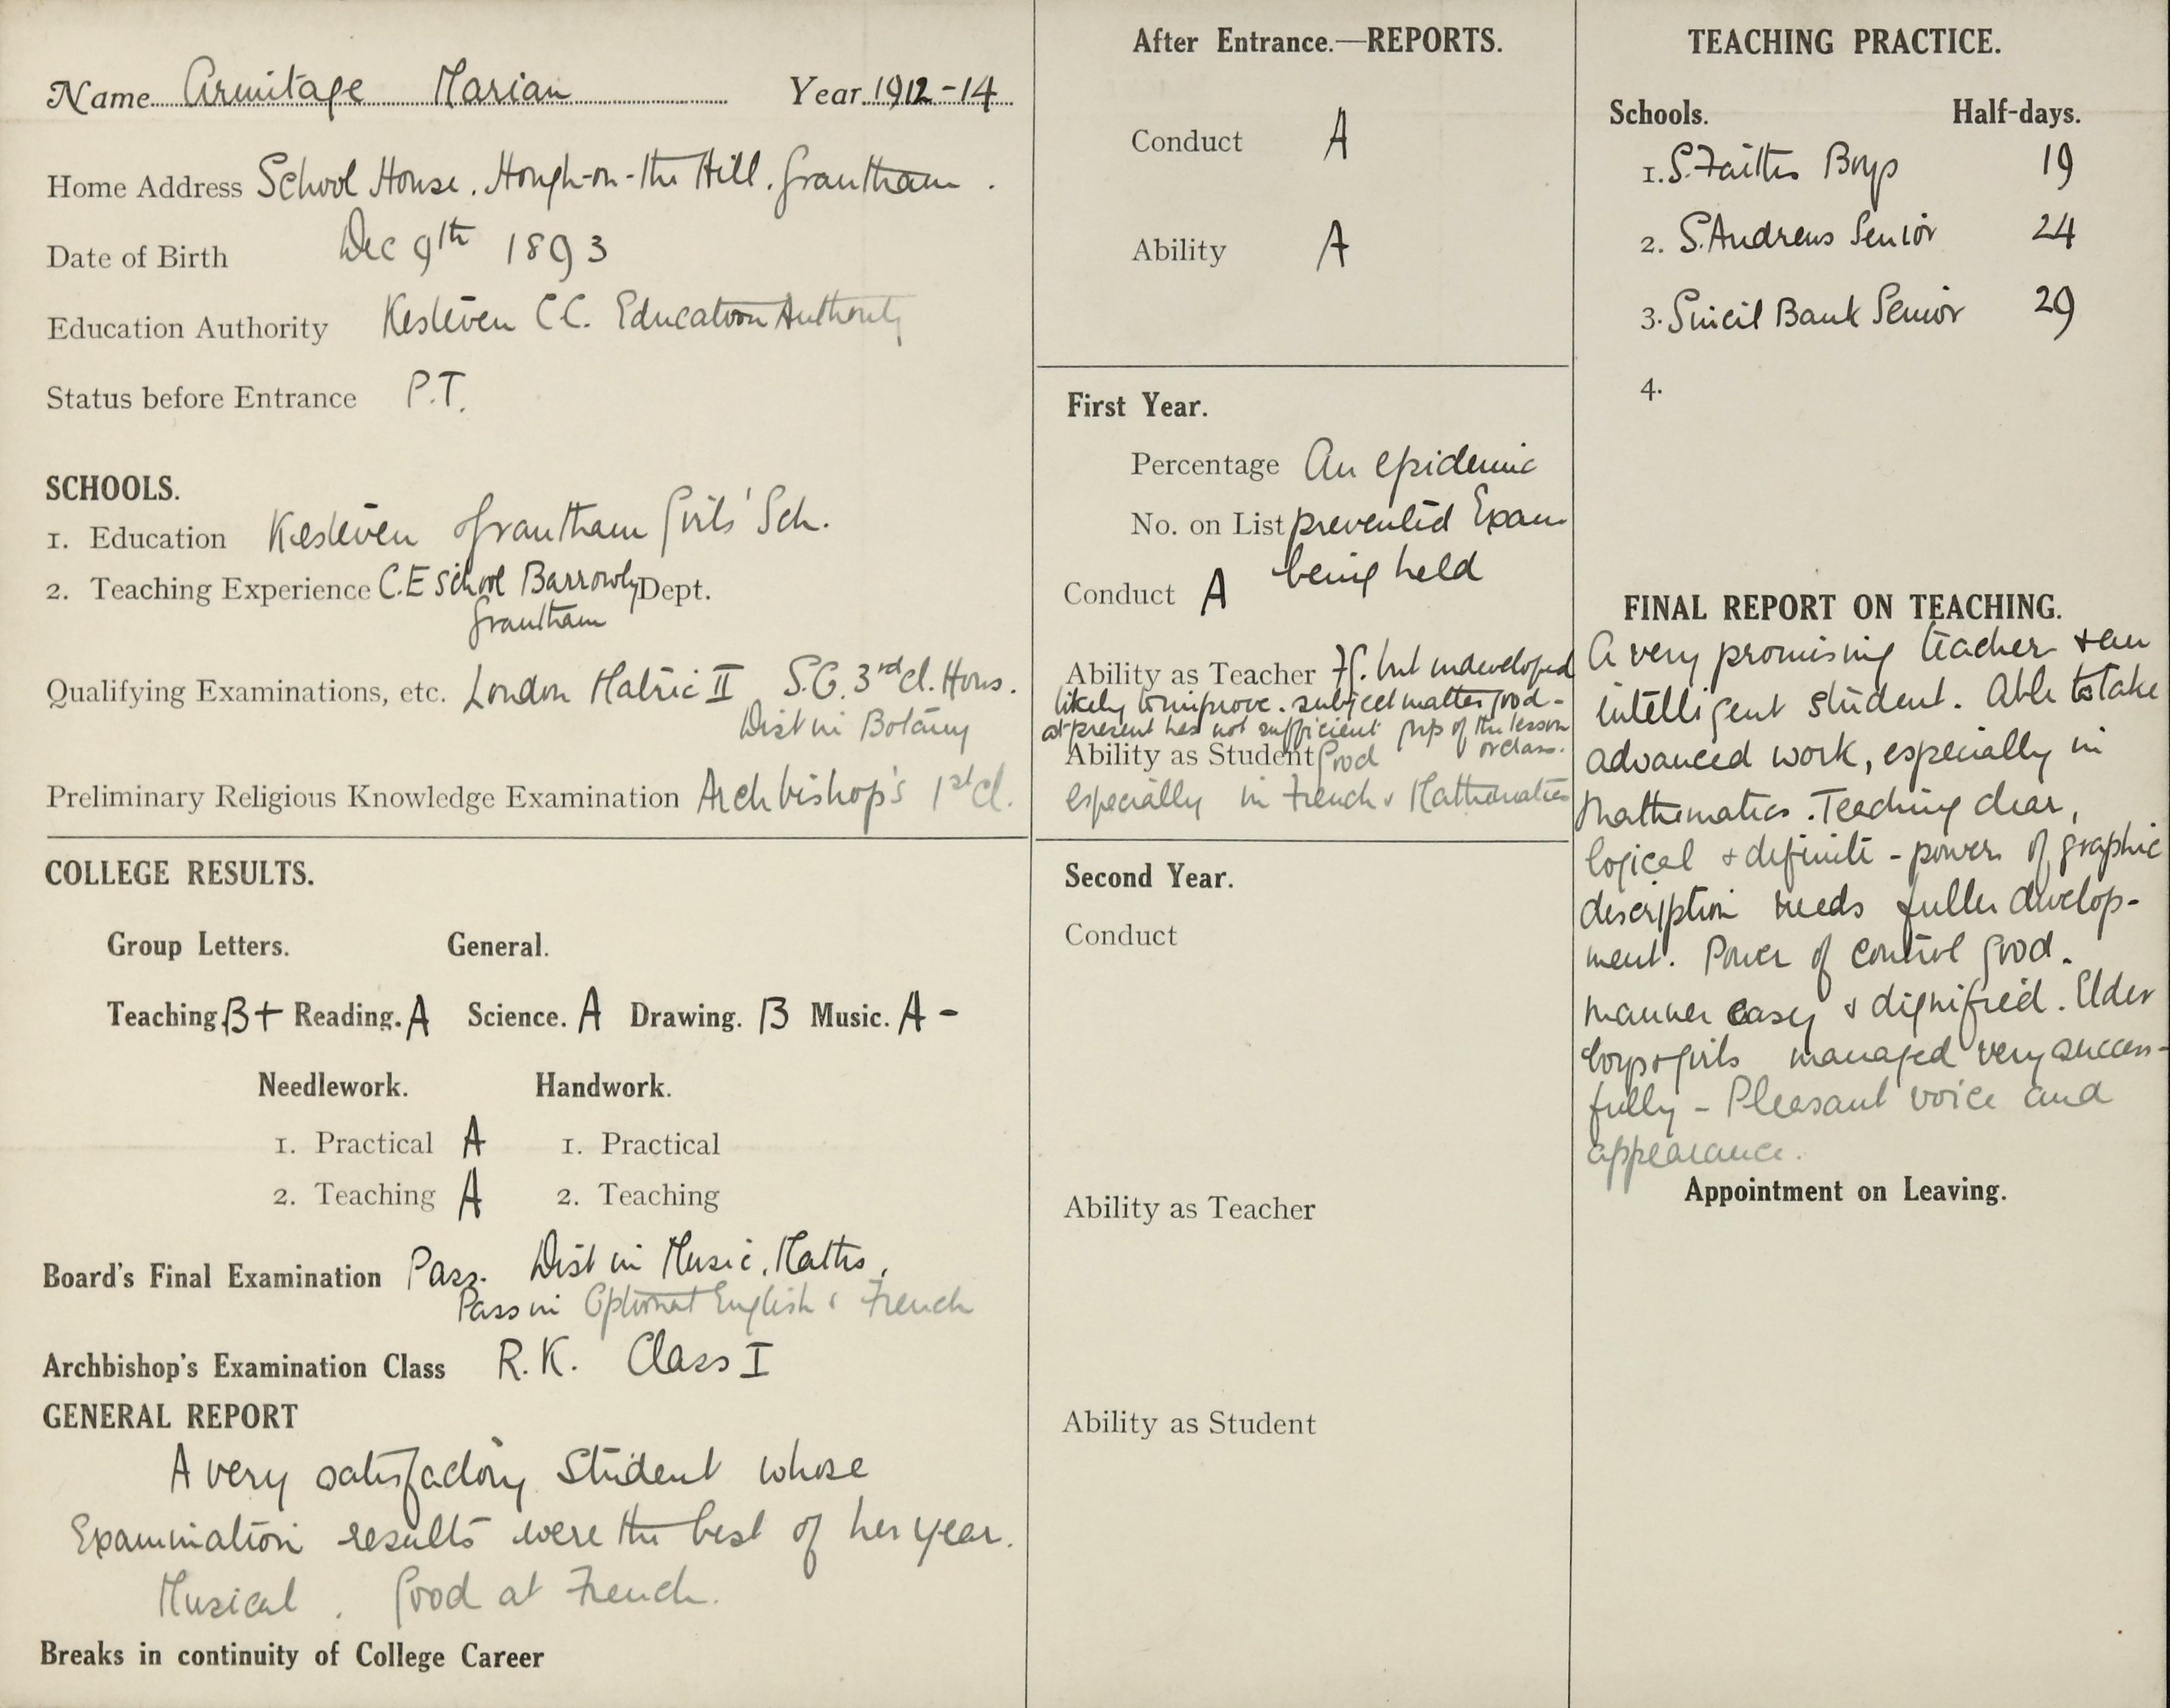 Name Armitage Marian Year 1912-14
Home Address School House, Hough-on-the Hill, Grantham.
Date of Birth Dec 9th 1893
Education Authority Kesteven C.C. Education Authority
Status before Entrance P.T.
SCHOOLS.
1. Education Kesteven & Grantham Girls' Sch.
2. Teaching Experience C.E School Barrowby Dept.
Grantham
Qualifying Examinations, etc. London Matric II S.C. 3rd Cl. Hons.
Dist in Botany
Preliminary Religious Knowledge Examination Archbishop's 1st Cl.
COLLEGE RESULTS.
Group Letters. General.
Teaching. B+ Reading. A Science. A Drawing. B Music. A -
Needlework. Handwork.
1. Practical A 1. Practical
2. Teaching A 2. Teaching
Board's Final Examination Pass. Dist in Music, Maths,
Pass in Optional English & French
Archbishop's Examination Class R.K. Class I
GENERAL REPORT
A very satisfactory Student whose
Examination results were the best of her year.
Musical. Good at French.
Breaks in continuity of College Career
After Entrance.—REPORTS.
Conduct A
Ability A
First Year.
Percentage An epidemic
No. on List prevented Exam
being held
Conduct A
Ability as Teacher F.G. but undeveloped
likely to improve. subject matter good -
at present has not sufficient grip of the lesson
or class.
Ability as Student Good
especially in French & Mathematics
Second Year.
Conduct
Ability as Teacher
Ability as Student
TEACHING PRACTICE.
Schools. Half-days.
1. S. Faiths Boys 19
2. S. Andrews Senior 24
3. Sincil Bank Senior 29
4.
FINAL REPORT ON TEACHING.
A very promising teacher & an
intelligent student. Able to take
advanced work, especially in
Mathematics. Teaching clear,
logical & definite - power of graphic
description needs fuller develop-
ment. Power of control good.
manner easy & dignified. Elder
boys & girls managed very success-
fully - Pleasant voice and
appearance.
Appointment on Leaving.